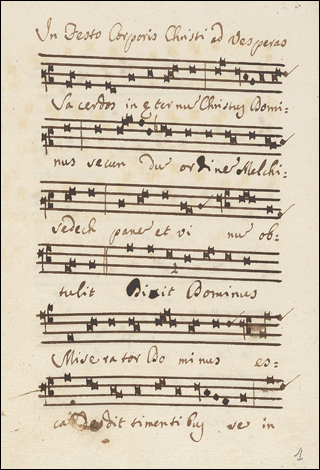 In Festo Corporis Christi ad Vesperas
Sacerdos in eternu Christus Domi-
nus secun du ordine Melchi-
sedech pane et vi nu ob-
tulit Dixit Dominus
Miserator Do minus es-
ca dedit timentibus se in
1